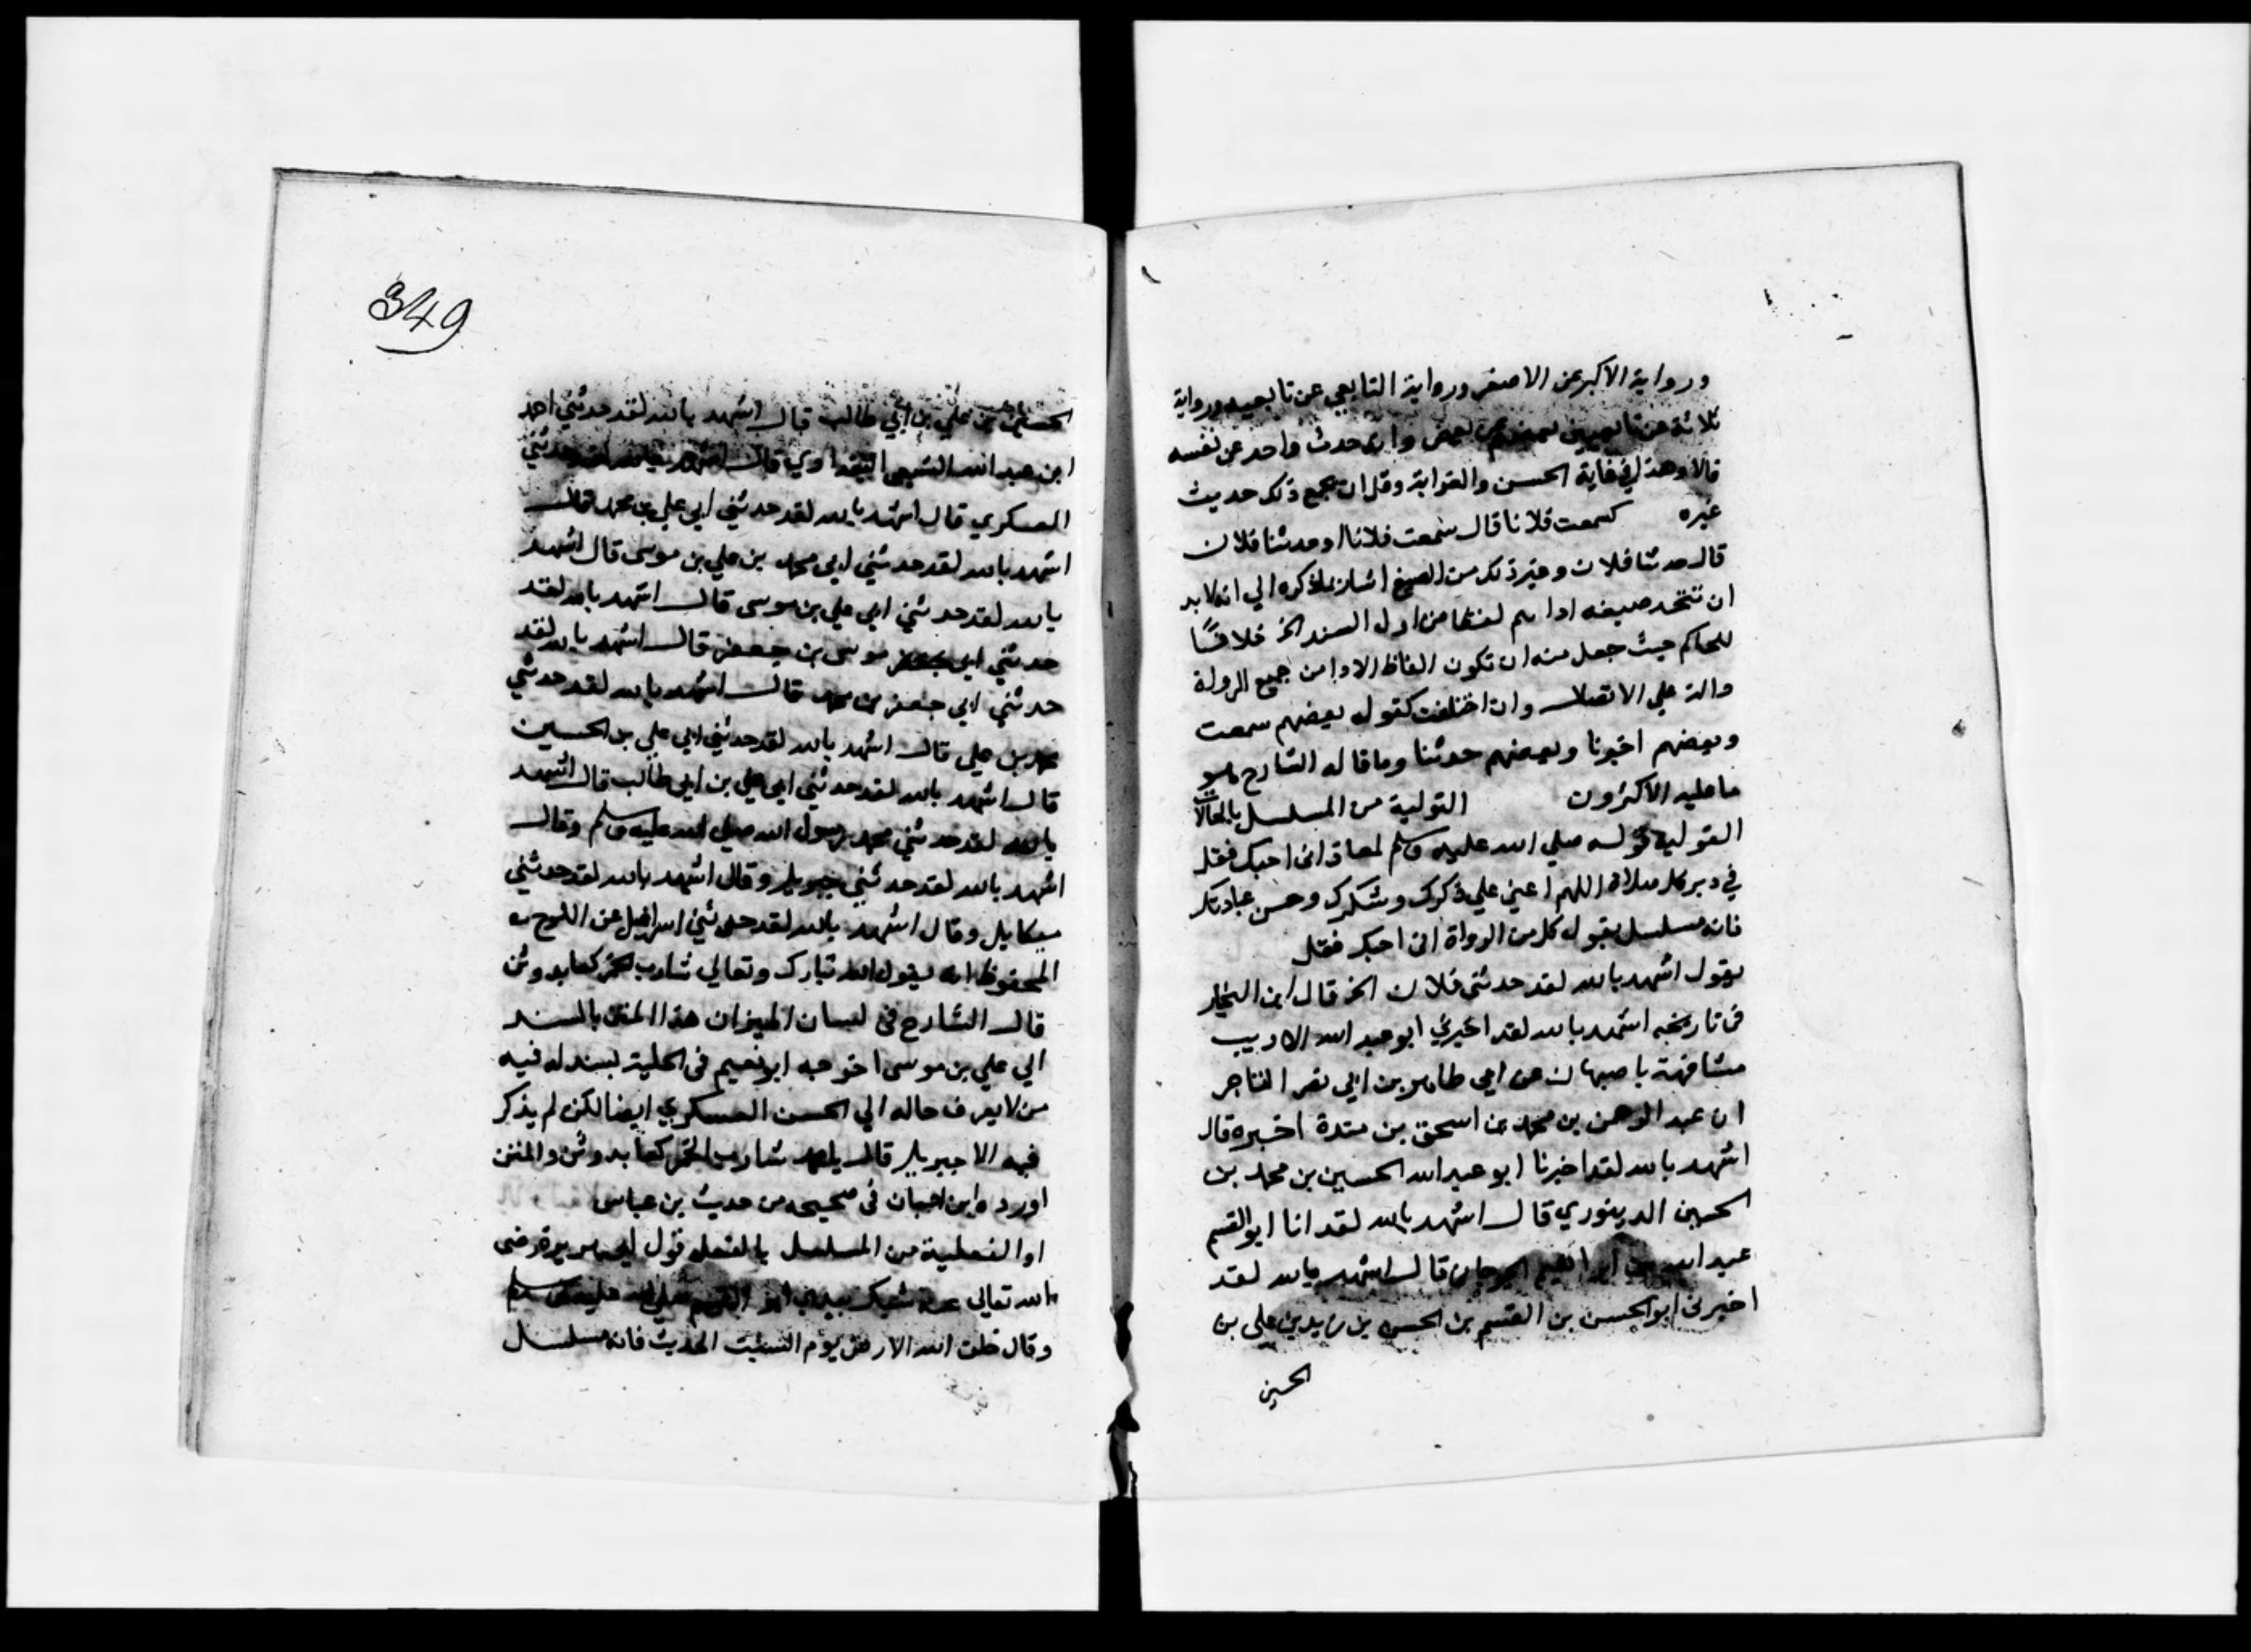 ورواية الاكبر عن الاصغر ورواية التابعي عن تابعيه ورواية
ثلاثة من تابعيين بعضهم عن بعض وان حدث واحد عن نفسه
قالا وهذا في غاية الحسن والغرابة وقل ان يجمع ذلك حديث
غيره كسمعت فلانا قال سمعت فلانا او حدثنا فلان
قال حدثنا فلان وغير ذلك من الصيغ اشار بما ذكره الي انه لا بد
ان تتحد صيغه اداىهم لفظا من اول السند الخ خلافا
للحاكم حيث جعل منه ان تكون الفاظ الادا من جميع الرواة
دالة علي الاتصال وان اختلفت كقول بعضهم سمعت
وبعضهم اخبرنا وبعضهم حدثنا وما قاله الشارح هو
ما عليه الاكثرون القولية من المسلسل بالحالات
القولية قوله صلي الله عليه وسلم لمعاذ اني احبك فقل
في دبر كل صلاة اللهم اعني علي ذكرك وشكرك وحسن عبادتك
فانه مسلسل بقول كل من الرواة اني احبك فقل
يقول اشهد بالله لقد حدثني فلان الخ قال ابن النجار
في تاريخه اشهد بالله لقد اخبرني ابو عبد الله الاديب
مشافهة باصبهان عن ابي طاهر بن ابي نصر التاجر
ان عبد الرحمن بن محمد بن اسحق بن مندة اخبره قال
اشهد بالله لقد اخبرنا ابو عبد الله الحسين بن محمد بن
الحسين الدينوري قال اشهد بالله لقد انا ابو القسم
عبد الله بن ابراهيم الجرجاني قال اشهد بالله لقد
اخبرني ابو الحسن بن القسم بن الحسن بن زيد بن علي بن
الحسين
349
الحسين بن علي بن ابي طالب قال اشهد بالله لقد حدثني احمد
ابن عبد الله الشيعي البغدادي قال اشهد بالله لقد حدثني
العسكري قال اشهد بالله لقد حدثني ابي علي بن محمد قال
اشهد بالله لقد حدثني ابي محمد بن علي بن موسى قال اشهد
بالله لقد حدثني ابي علي بن موسى قال اشهد بالله لقد
حدثني ابي موسى بن جعفر قال اشهد بالله لقد
حدثني ابي جعفر بن محمد قال اشهد بالله لقد حدثني
محمد بن علي قال اشهد بالله لقد حدثني ابي علي بن الحسين
قال اشهد بالله لقد حدثني ابي علي بن ابي طالب قال اشهد
بالله لقد حدثني محمد رسول الله صلي الله عليه وسلم وقال
اشهد بالله لقد حدثني جبريل وقال اشهد بالله لقد حدثني
ميكايل وقال اشهد بالله لقد حدثني اسرافيل عن اللوح
المحفوظ انه يقول الله تبارك وتعالي شارب الخمر كعابد وثن
قال الشارح في لسان الميزان هذا المتن بالسند
الي علي بن موسى اخرجه ابو نعيم في الحلية بسند له فيه
من لا يعرف حاله الي الحسن العسكري ايضا لكن لم يذكر
فيه الا جبريل قال يا محمد شارب الخمر كعابد وثن والمتن
اورده ابن حبان في صحيحه من حديث بن عباس
او الفعلية من المسلسل بالفعلة قول ابي هريرة رضى
الله تعالى عنه شبك بيدي ابو القسم صلي الله عليه وسلم
وقال خلق الله الارض يوم السبت الحديث فانه مسلسل